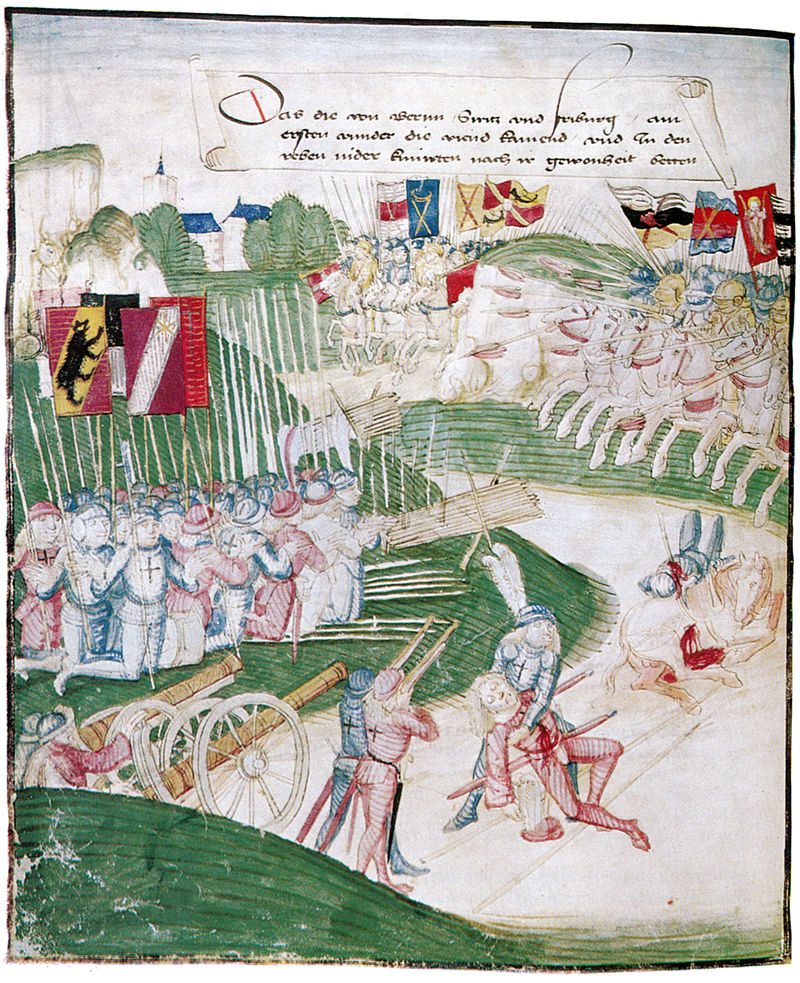 Das die von Bernn / Switz vnd friburg / am
ersten vnnder die viend kamend / vnd In den
reben nider knüwten nach ir gewonheit betten